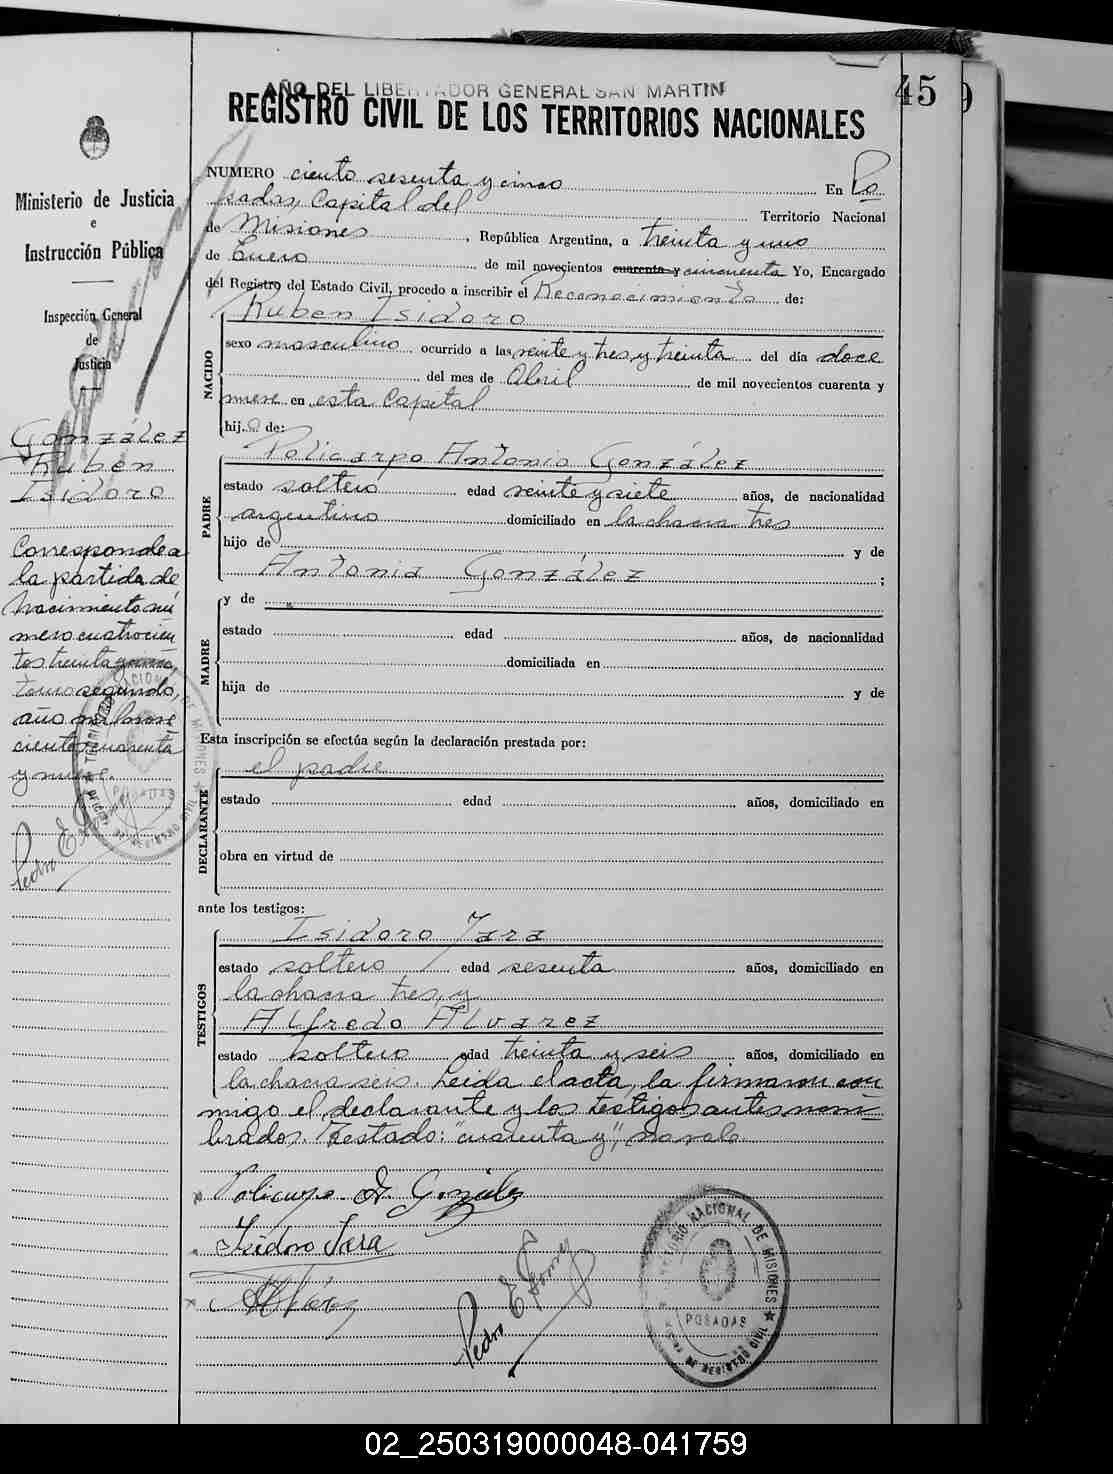 AÑO DEL LIBERTADOR GENERAL SAN MARTIN
45
9
REGISTRO CIVIL DE LOS TERRITORIOS NACIONALES
Ministerio de Justicia
e
Instrucción Pública
Inspección General
de
Justicia
González
Ruben
Isidoro
Corresponde a
la partida de
nacimiento nú
mero cuatrocien
tos treinta
tomo segundo,
año mil nove
cientos cuarenta
y nueve.
NUMERO ciento sesenta y cinco En Po
sadas, Capital del Territorio Nacional
de Misiones, República Argentina, a treinta y uno
de Enero de mil novecientos cuarenta y cincuenta Yo, Encargado
del Registro del Estado Civil, procedo a inscribir el Reconocimiento de:
NACIDO
Ruben Isidoro
sexo masculino ocurrido a las veinte y tres y treinta del día doce
del mes de Abril de mil novecientos cuarenta y
nueve en esta Capital
hijo de:
PADRE
Policarpo Antonio González
estado soltero edad veinte y siete años, de nacionalidad
argentino domiciliado en la chacra tres
hijo de y de
Antonia González ;
MADRE
y de
estado edad años, de nacionalidad
domiciliada en
hija de y de
Esta inscripción se efectúa según la declaración prestada por:
DECLARANTE
el padre
estado edad años, domiciliado en
obra en virtud de
ante los testigos:
TESTIGOS
Isidoro Jara
estado soltero edad sesenta años, domiciliado en
la chacra tres, y
Alfredo Alvarez
estado soltero edad treinta y seis años, domiciliado en
la chacra seis. Leída el acta, la firmaron con
migo el declarante y los testigos antes nom
brados. Testado: "cuarenta y", no vale.
Policarpo A. González
Isidoro Jara
Pedro E.
TERRITORIO NACIONAL DE MISIONES
POSADAS
02_250319000048-041759